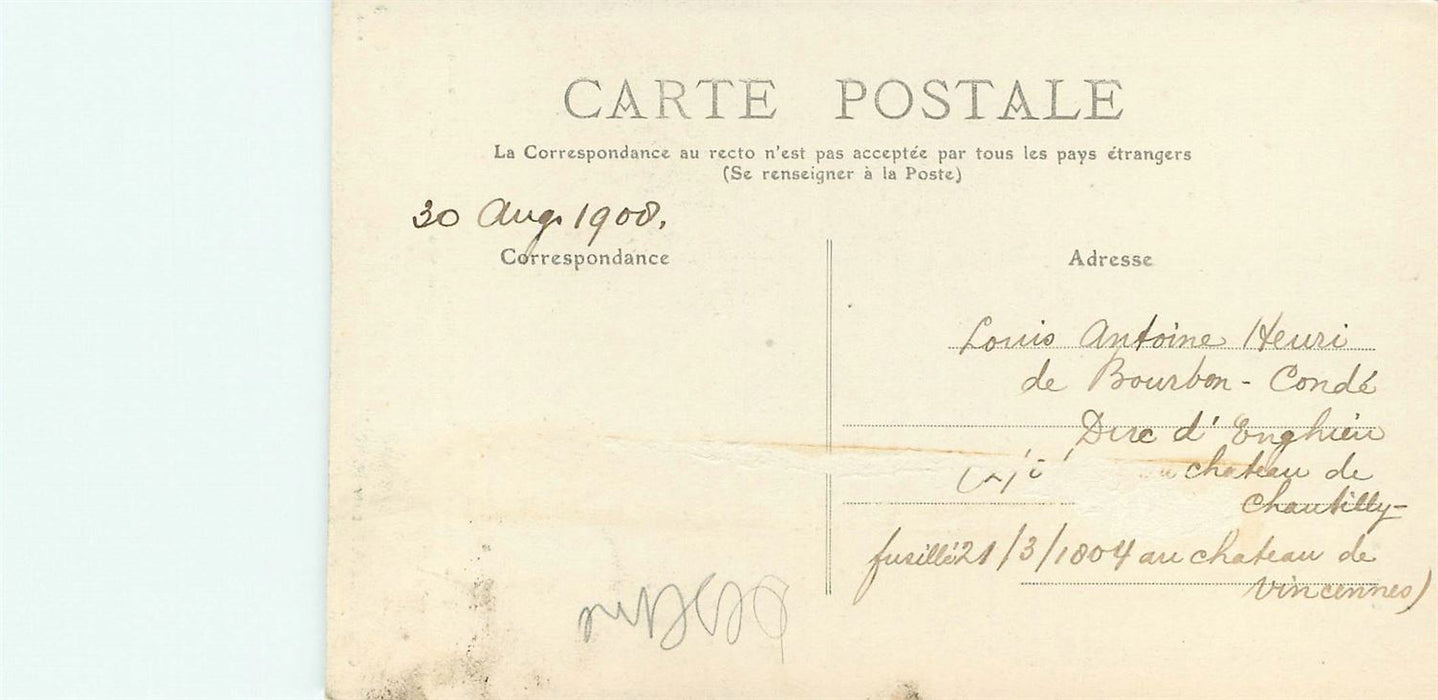 CARTE POSTALE
La Correspondance au recto n'est pas acceptée par tous les pays étrangers
(Se renseigner à la Poste)
30 Aug. 1908.
Correspondance
Adresse
Louis Antoine Henri
de Bourbon - Condé
Duc d'Enghien
chateau de
Chantilly-
fusillé 21/3/1804 au chateau de
Vincennes)